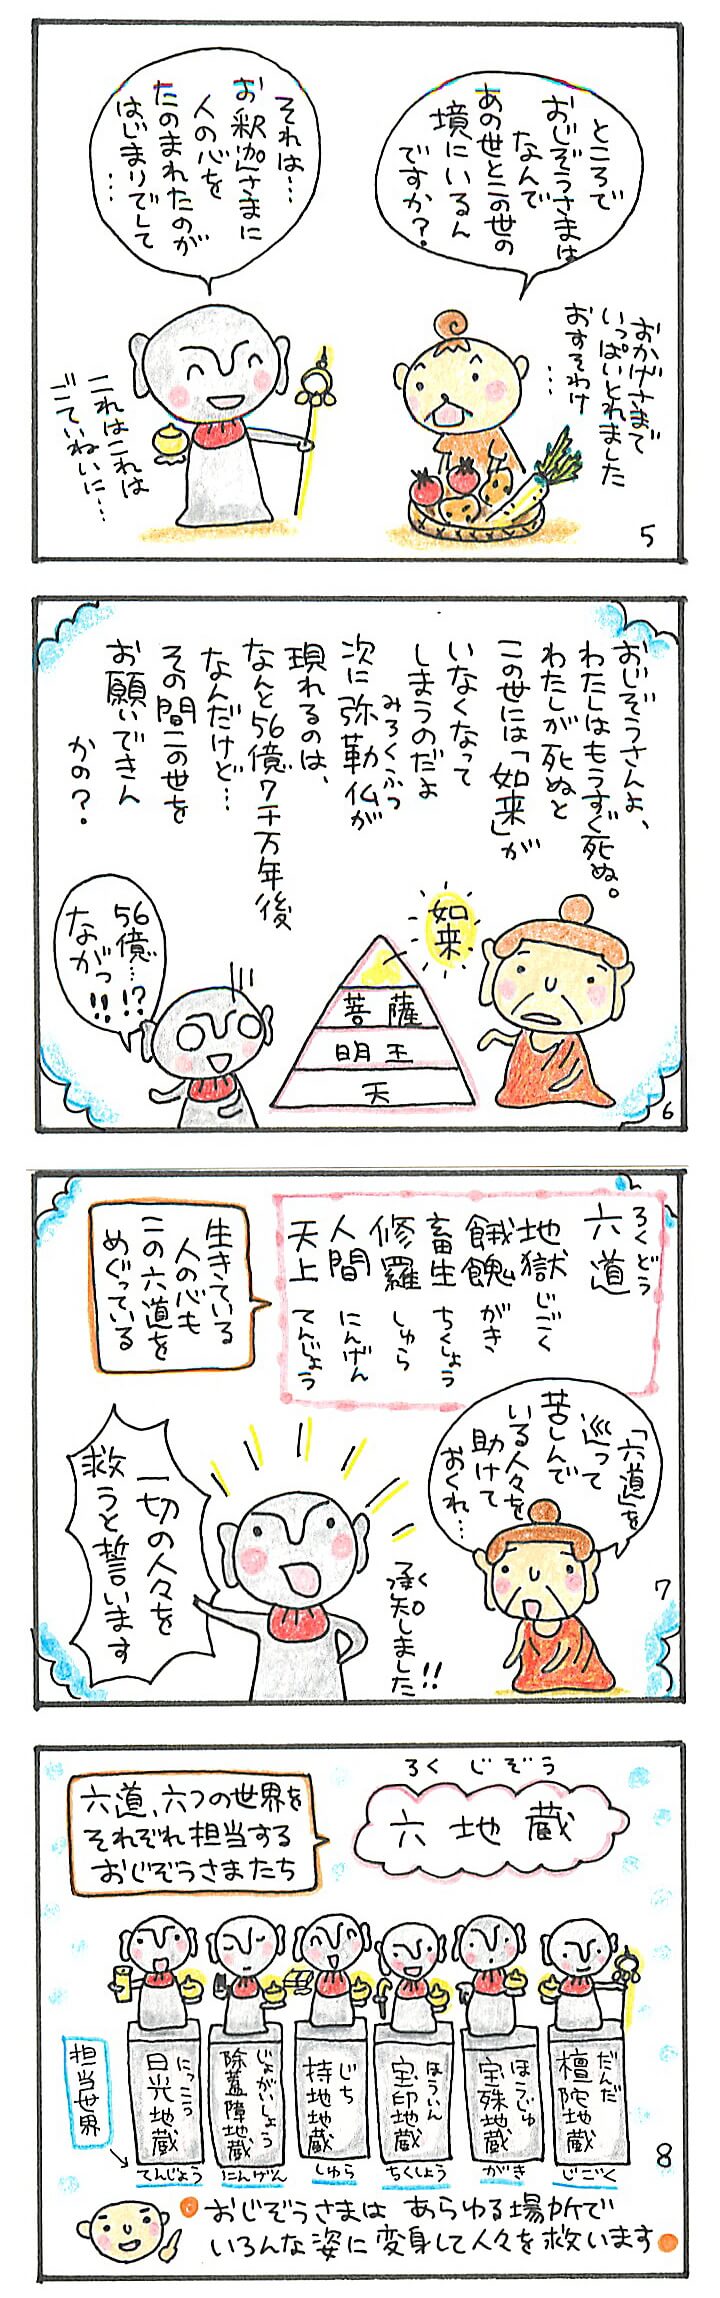 ところで
おじぞうさまは
なんで
あの世とこの世の
境にいるん
ですか？
おかげさまで
いっぱいとれました
おすそわけ
…
それは…
お釈迦さまに
人の心を
たのまれたのが
はじまりでして
…
これはこれは
ごていねいに…
5
おじぞうさんよ、
わたしはもうすぐ死ぬ。
わたしが死ぬと
この世には「如来」が
いなくなって
しまうのだよ
みろくぶつ
次に弥勒仏が
現れるのは、
なんと56億7千万年後
なんだけど…
その間この世を
お願いできん
かの？
如来
菩薩
明王
天
56億…!?
ながっ!!
6
六道
ろくどう
地獄
じごく
餓鬼
がき
畜生
ちくしょう
修羅
しゅら
人間
にんげん
天上
てんじょう
生きている
人の心も
この六道を
めぐっている
「六道」を
巡って
苦しんで
いる人々を
助けて
おくれ…
承知しました!!
一切の人々を
救うと誓います
7
ろくじぞう
六地蔵
六道、六つの世界を
それぞれ担当する
おじぞうさまたち
だんだ
檀陀地蔵
ほうじゅ
宝珠地蔵
ほういん
宝印地蔵
じち
持地地蔵
じょがいしょう
除蓋障地蔵
にっこう
日光地蔵
担当世界
てんじょう
にんげん
しゅら
ちくしょう
がき
じごく
8
おじぞうさまは あらゆる場所で
いろんな姿に変身して人々を救います